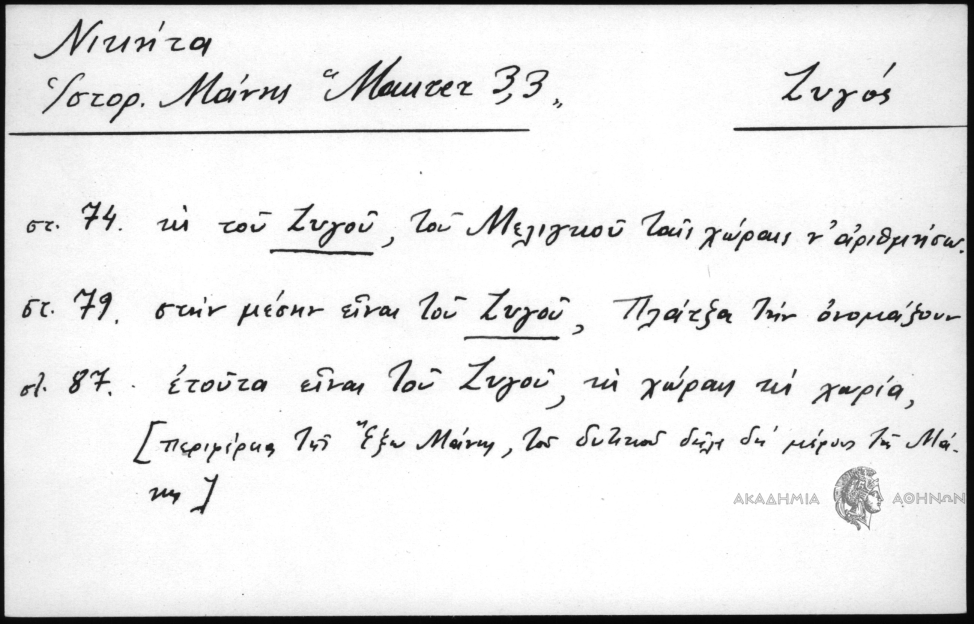 Νικήτα
Ἱστορ. Μάνης "Μαurer 3,3„
Ζυγός
στ. 74. κὶ τοῦ Ζυγοῦ, τοῦ Μελιγκοῦ ταὶς χώραις ν' ἀριθμήσω.
στ. 79. στὴν μέσην εἶναι τοῦ Ζυγοῦ, Πλάτζα τὴν ὀνομάζουν
στ. 87. ἐτοῦτα εἶναι τοῦ Ζυγοῦ, κὶ χώραις κὶ χωρία,
[περιφέρεια τῆς Ἔξω Μάνης, τοῦ δυτικοῦ δηλ. μέρους τῆς Μά-
νης]
ΑΚΑΔΗΜΙΑ ΑΘΗΝΩΝ